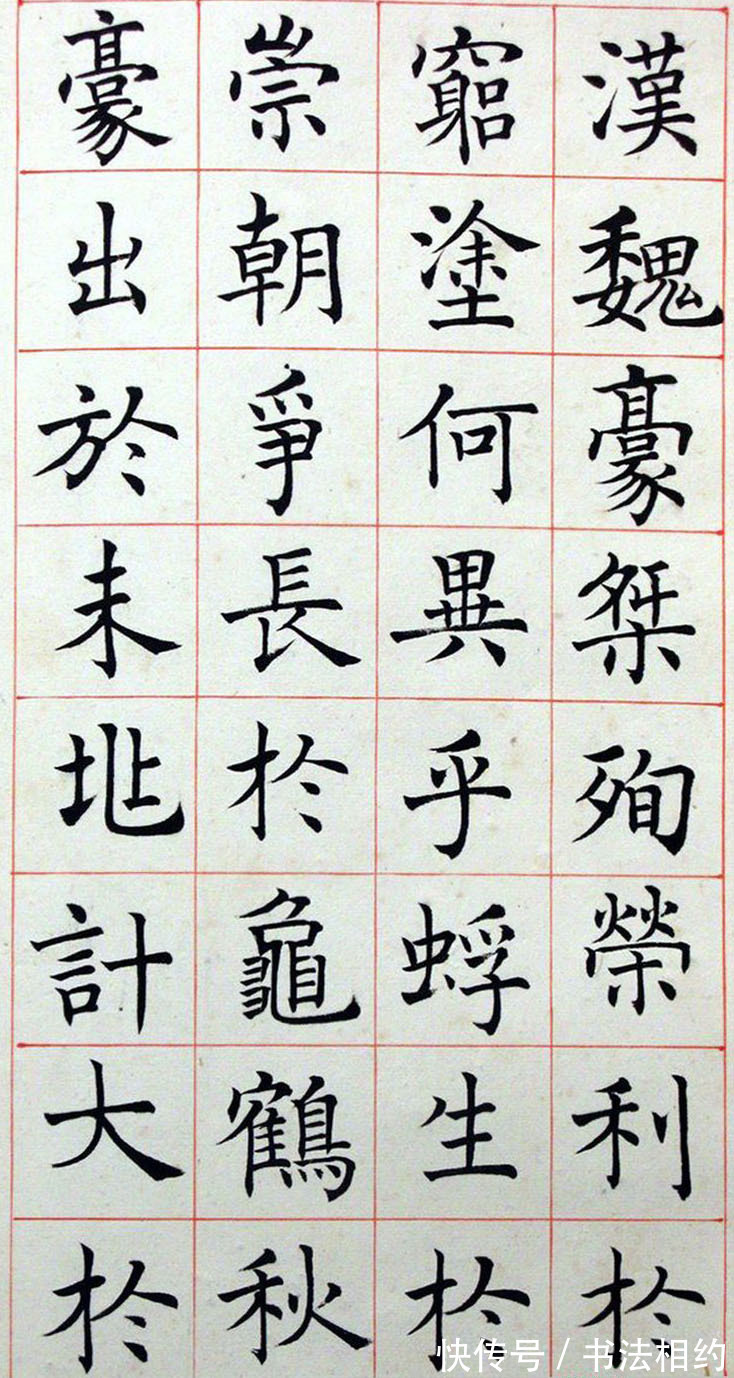 漢魏豪桀殉榮利於
窮塗何異乎蜉生於
崇朝爭長於龜鶴秋
豪出於未兆計大於
快传号 / 书法相约